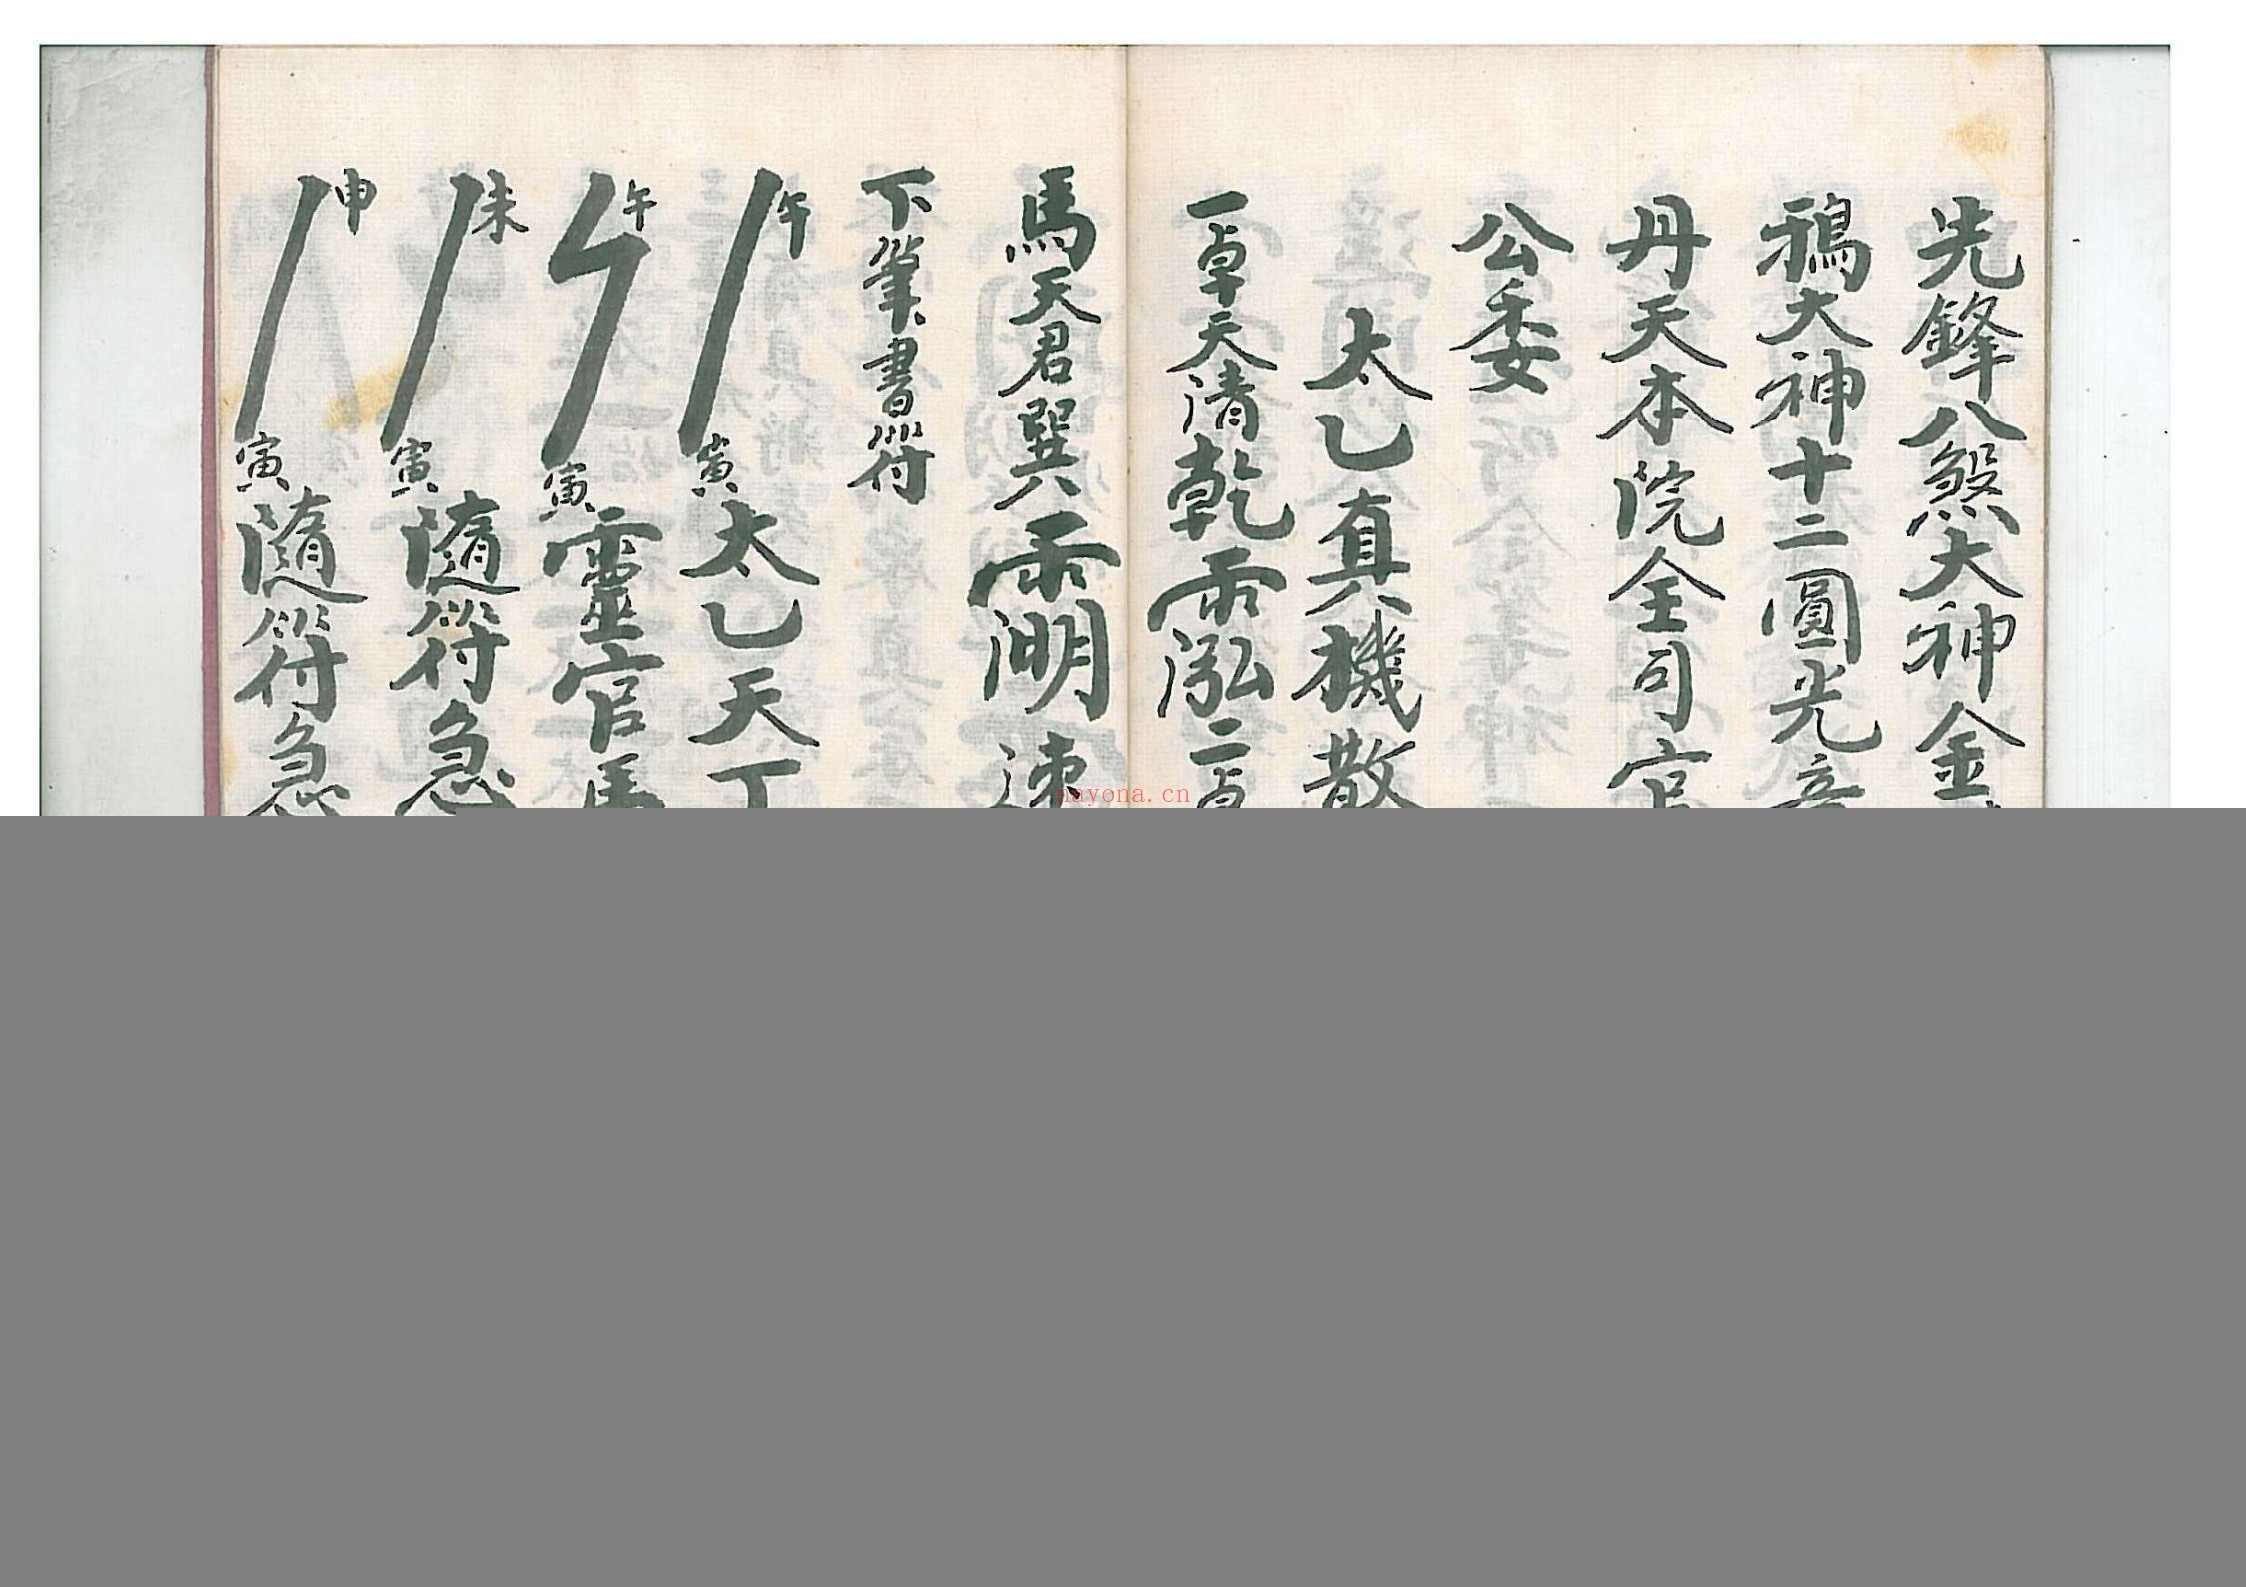 先鋒八煞大神金
鴉大神十二圓光
丹天本院全司官
公委
太乙真機散
一卓天清乾𠕇泓二
馬天君巽
下筆書符
午 寅 太乙天丁
午 寅 靈官馬
未 寅 隨符急
申 寅 隨符急
nayona.cn